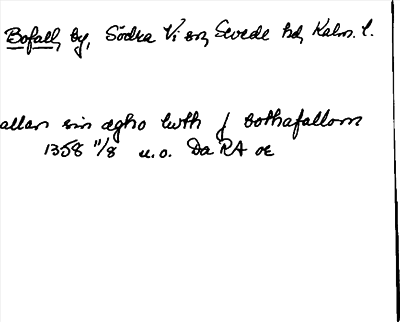 Bofall, by, Södra Vi sn, Sevede hd, Kalm. l.
allan min ægho lwth j bothafallom
1358 11/8 u.o. Da RA oe